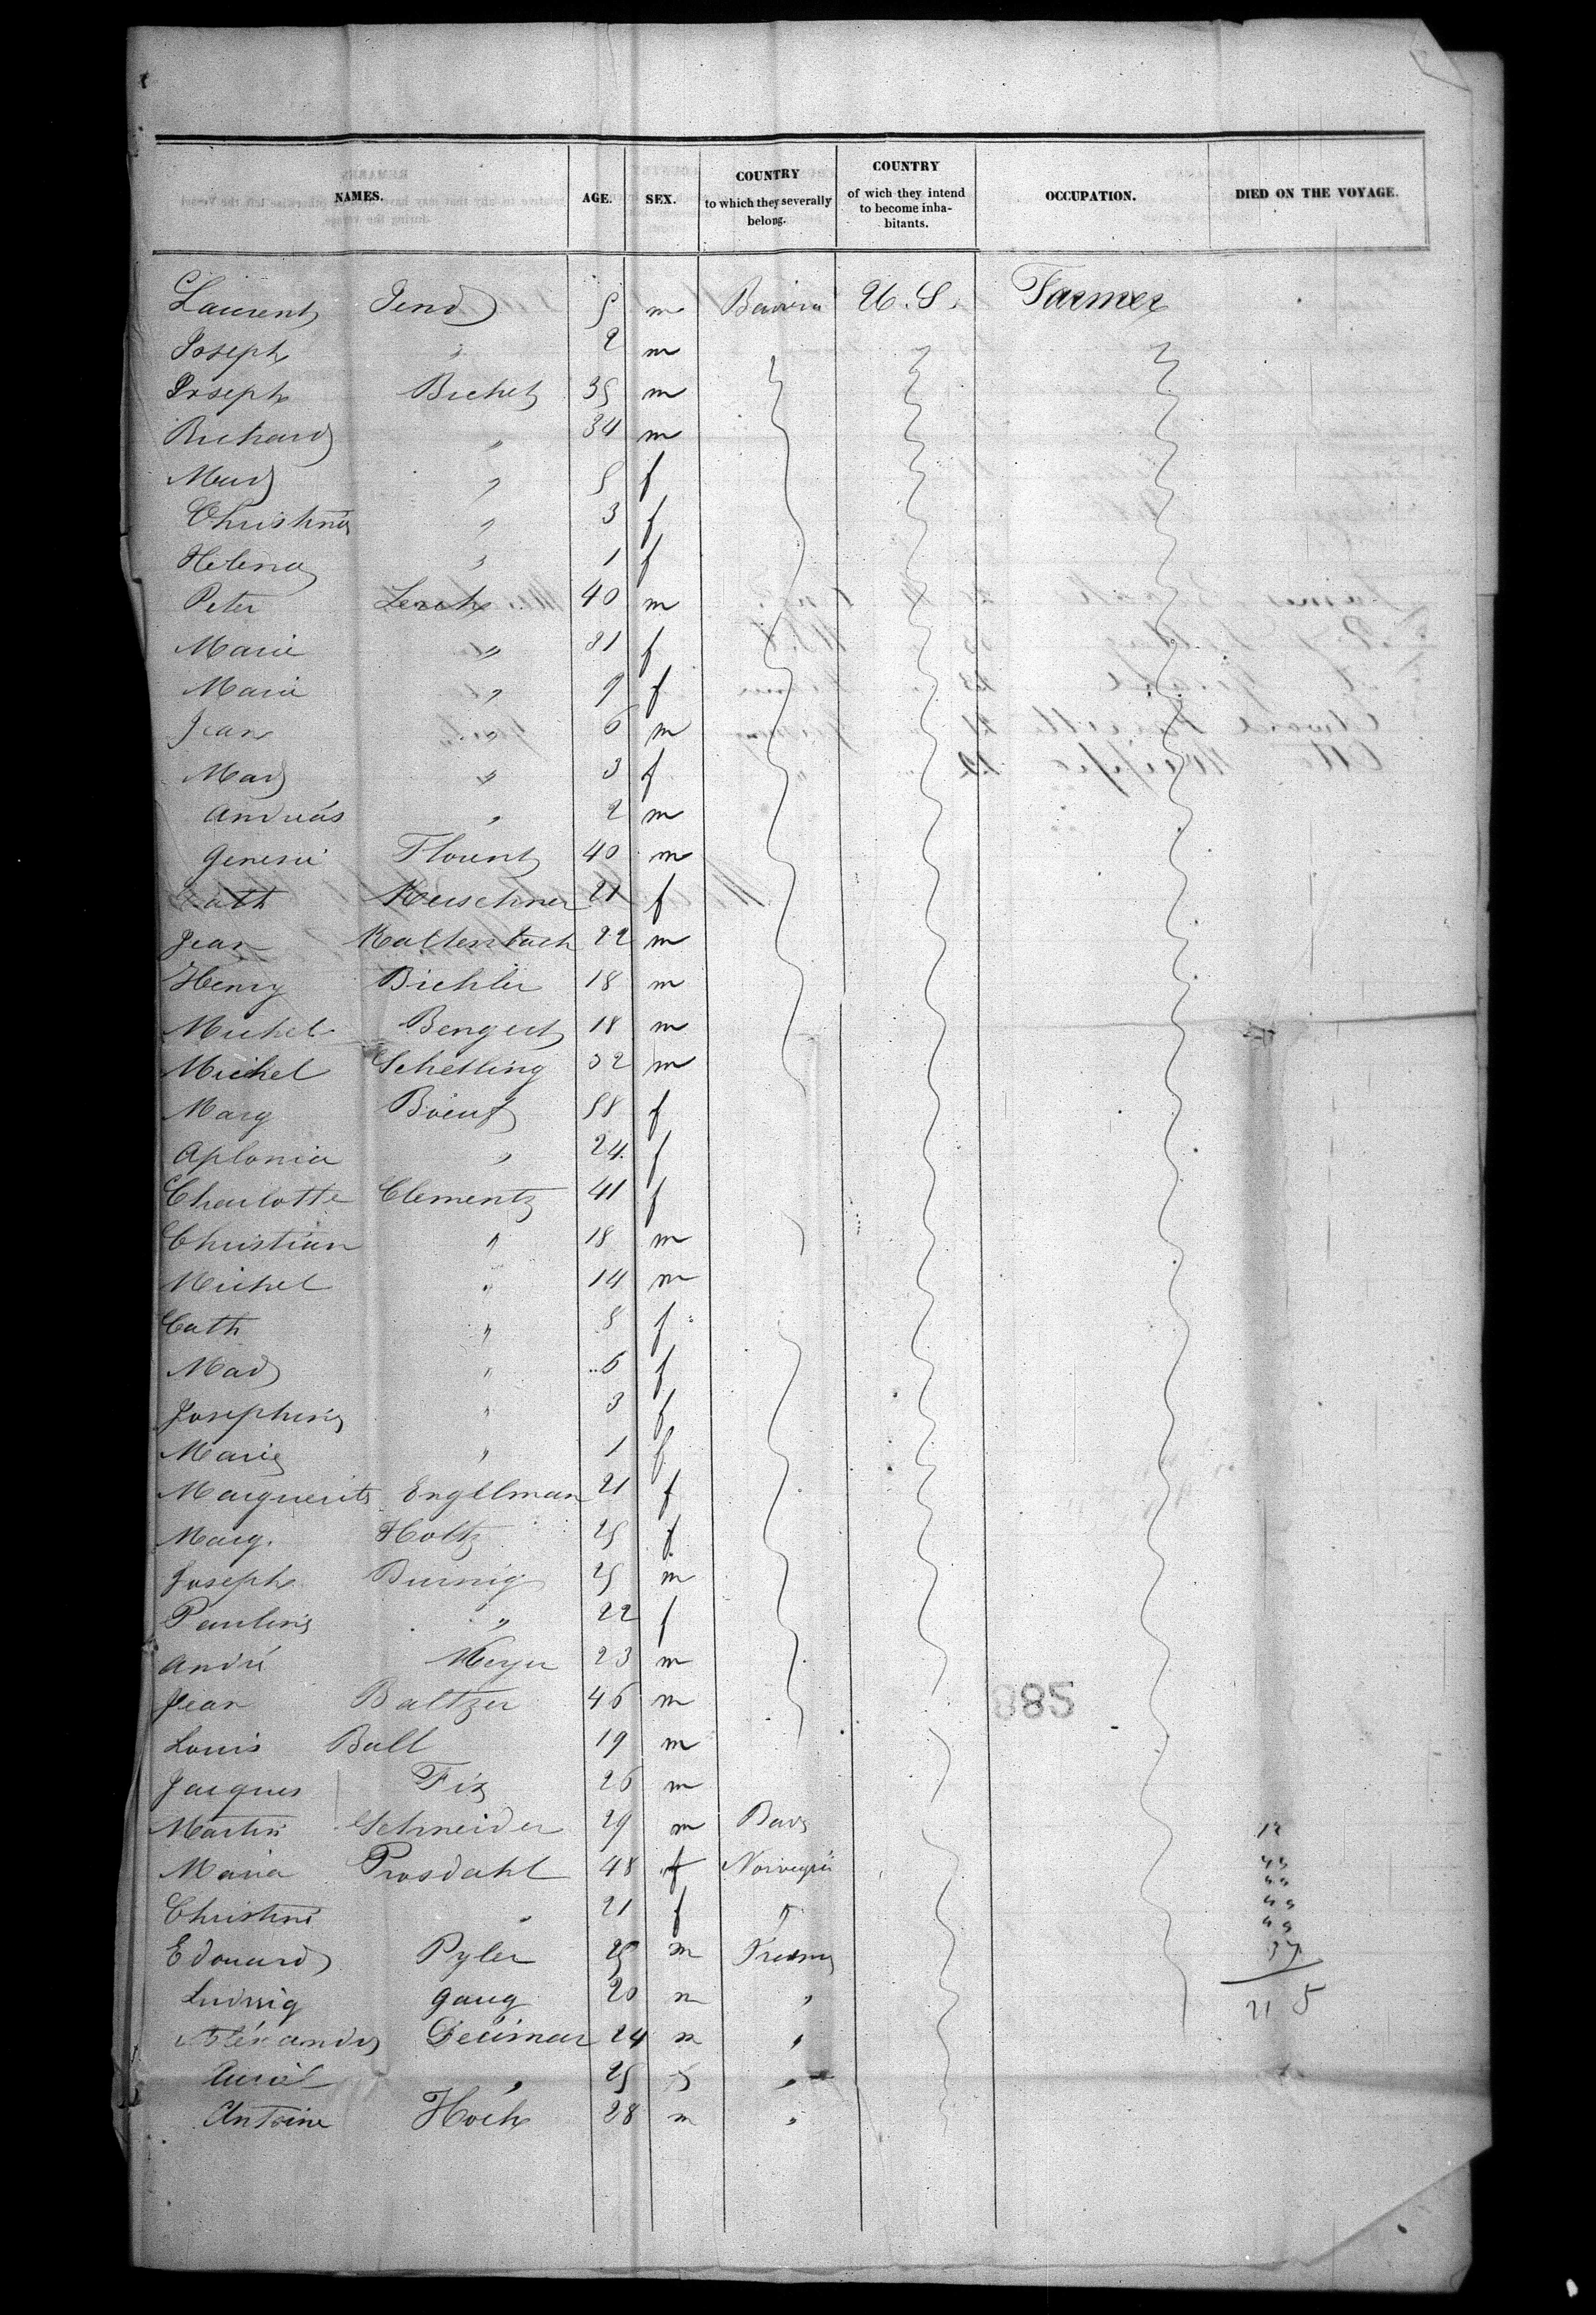 NAMES. AGE. SEX. COUNTRY to which they severally belong. COUNTRY of wich they intend to become inhabitants. OCCUPATION. DIED ON THE VOYAGE.
Laurent Jend 5 m Baviera U.S. Farmer
Joseph " 2 m
Joseph Bichel 35 m
Richard " 34 m
Mad " 5 f
Christina " 3 f
Helena " 1 f
Peter Lerch 40 m
Marie " 31 f
Marie " 9 f
Jean " 6 m
Mad " 3 f
Andreas " 2 m
Florent 40 m
Cath Kerschner 21 f
Jean Kaltenbach 22 m
Henry Bichler 18 m
Michel Bengert 18 m
Michel Schelling 32 m
Marg Boeuf 58 f
Aplonia " 24 f
Charlotte Clementz 41 f
Christian " 18 m
Michel " 14 m
Cath " 8 f
Mad " 6 f
Josephine " 3 f
Marie " 1 f
Marguerite Engelman 21 f
Marg. Holtz 25 f
Joseph Burnig 25 m
Pauline " 22 f
André Meyer 23 m
Jean Baltzer 46 m
885
Louis Ball 19 m
Jacques Fix 26 m
Martin Schneider 29 m Bav
12
Maria Prosdahl 48 f Norvegia
44
44
Christine " 21 f "
44
44
Edouard Pyler 25 m
37
Ludwig Gaug 20 m "
215
Alexandre 24 m "
" 25 "
Antoine Hoch 28 m "